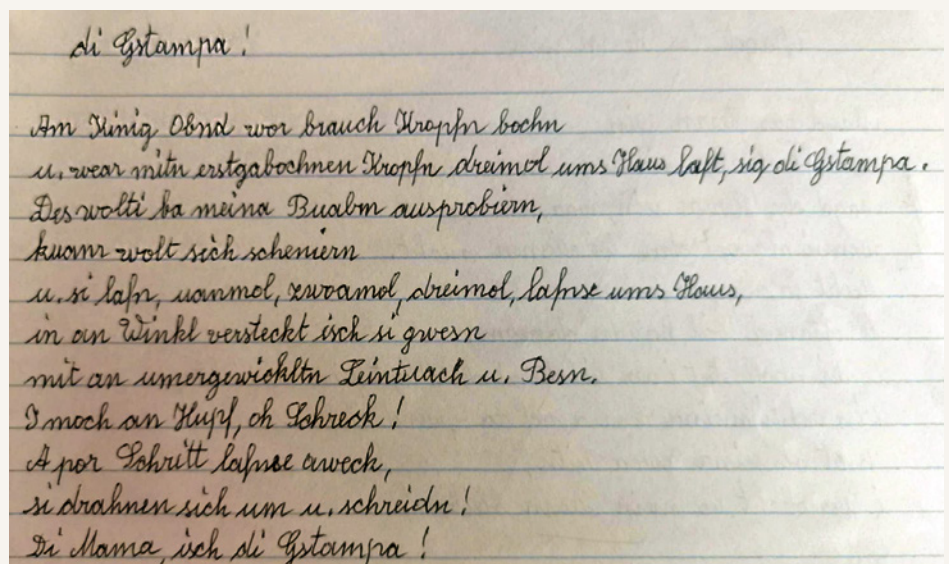 di Gstampa!
Am Kinig Obnd wor brauch Kropfn bochn
u. wear mitn erstgabochnen Kropfn dreimol ums Haus laft, sig di Gstampa.
Des wolti ba meina Buabm ausprobiern,
kuanr wolt sich scheniern
u. si lafn, uanmol, zwoamol, dreimol, lafnse ums Haus,
in an Winkl versteckt isch si gwesn
mit an umergewickltn Leintuach u. Besn.
I moch an Hupf, oh Schreck!
A por Schritt lafnse aweck,
si drahnen sich um u. schreidn!
Di Mama, isch di Gstampa!